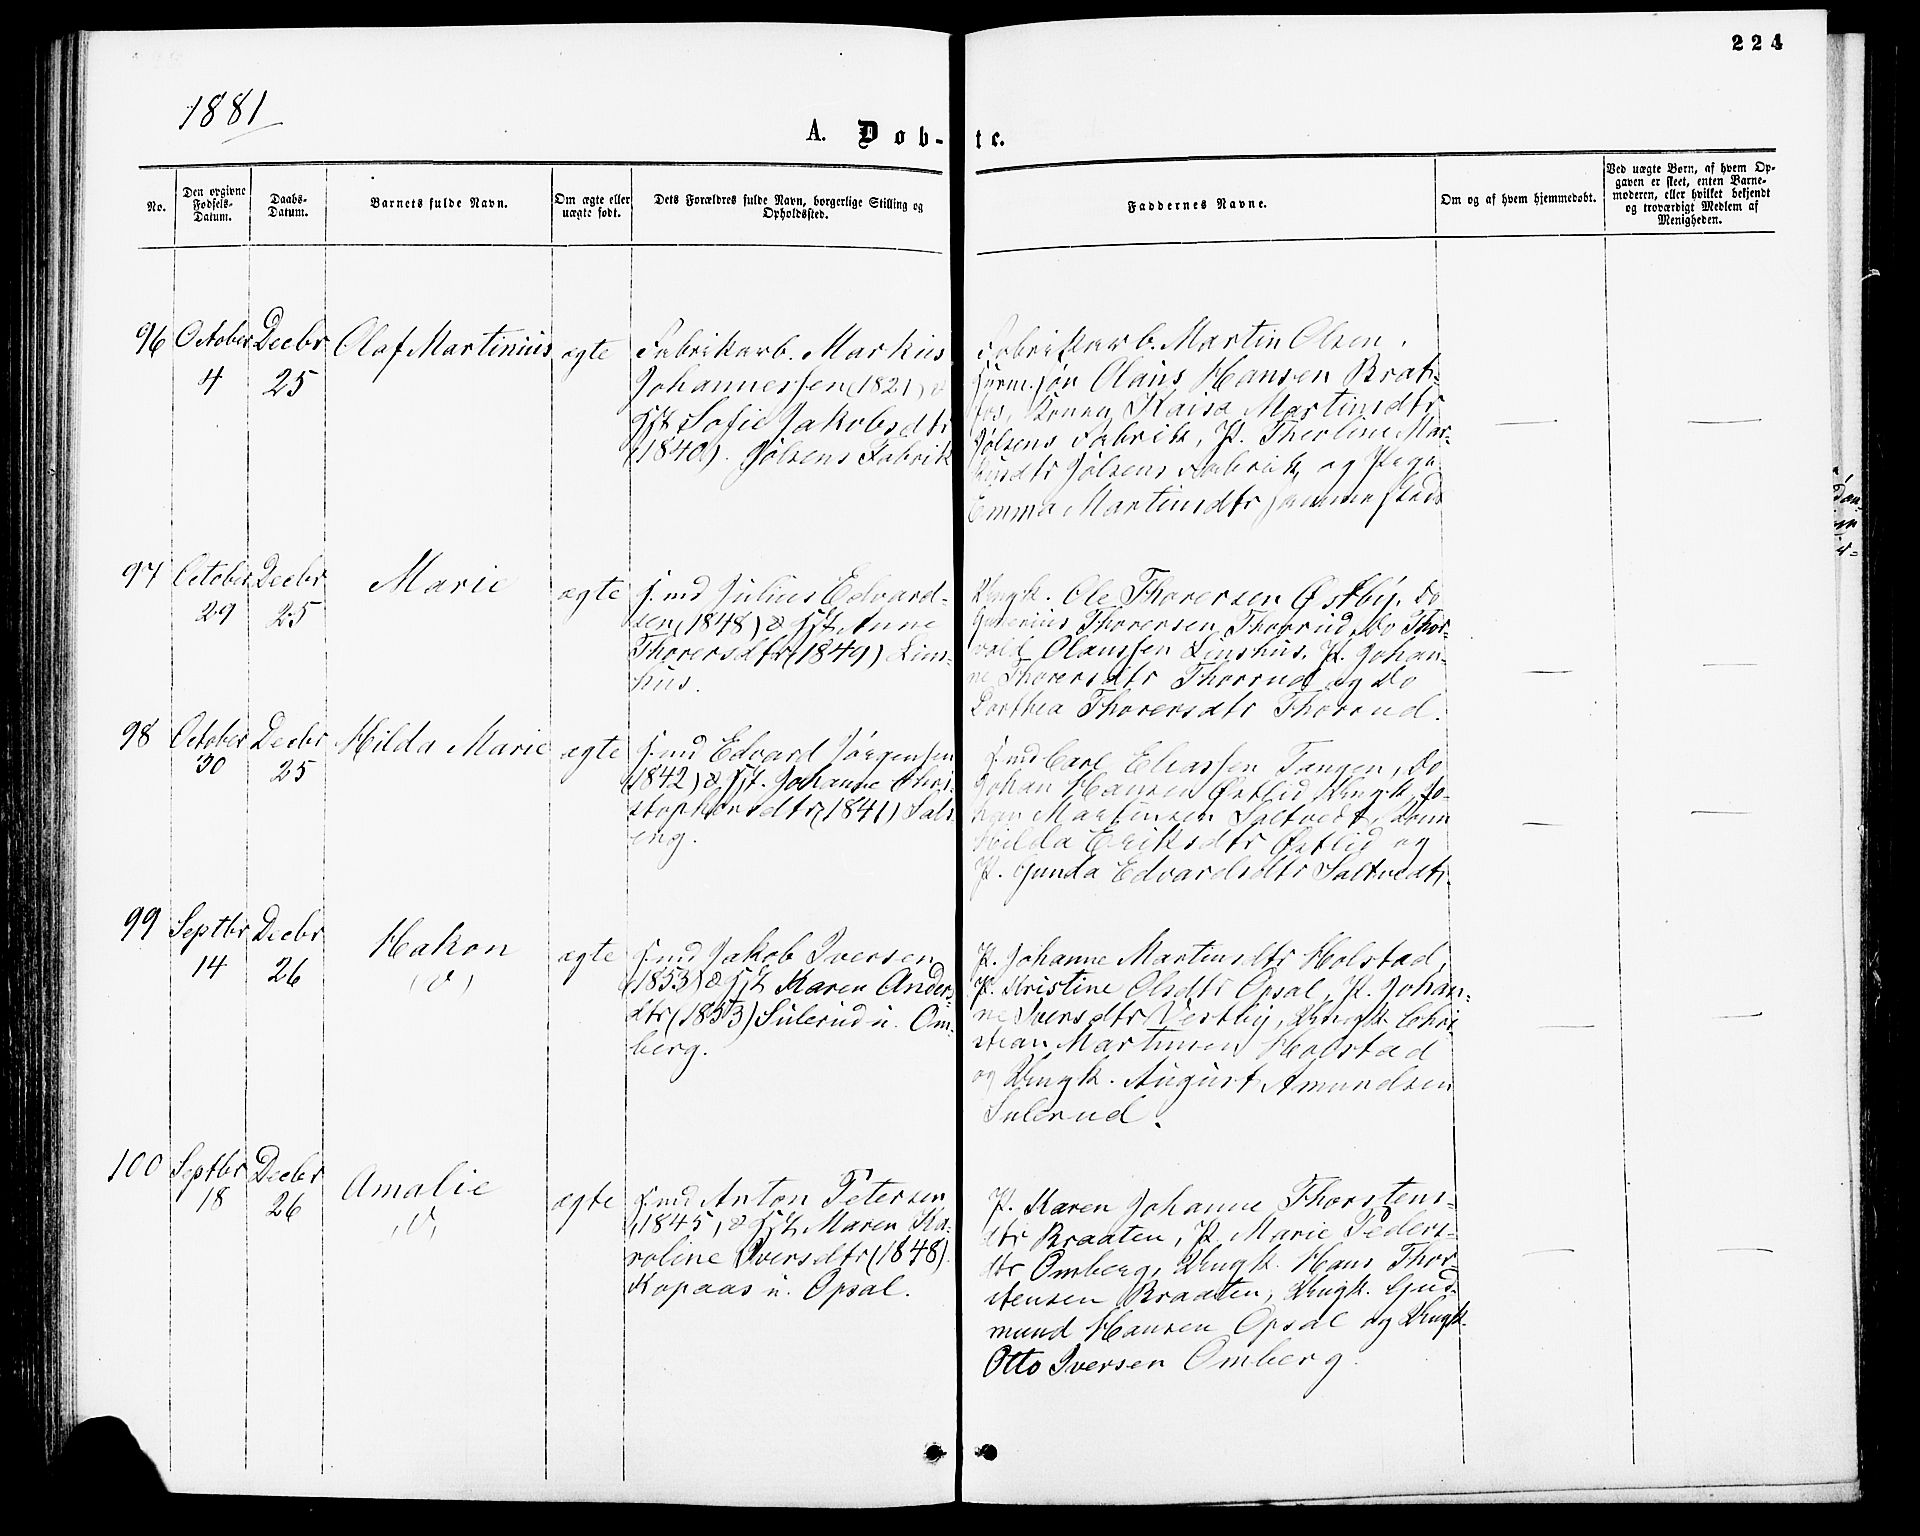 224
1881
A. Døb-te.
No.
Den opgivne
Fødsels-
Datum.
Daabs-
Datum.
Barnets fulde Navn.
Om ægte eller
uægte født.
Dets Forældres fulde Navn, borgerlige Stilling og
Opholdssted.
Faddernes Navne.
Om og af hvem hjemmedøbt.
Ved uægte Børn, af hvem Op-
gaven er skeet, enten Barne-
moderen, eller hvilket bekjendt
og troværdigt Medlem af
Menigheden.
96
October
4
Decbr
25
Olaf Martinius
ægte
Fabrikarb. Markus
Johannessen (1821) &
Sofie Jakobsdtr
(1840). Jølsens Fabrik
Fabrikarb. Martin Olsen,
Olaus Hansen Brat-
fos, Konen Kaisa Martinsdtr
Jølsens Fabrik, P. Theoline Mar-
kusdtr Jølsens Fabrik og Pige
Emma Martinsdtr sammesteds
97
October
29
Decbr
25
Marie
ægte
Julius Edvard-
sen (1848) & Anne
Thorersdtr (1849) Lins-
hus.
Ungk. Ole Thoresen Østby, Do
Thoresen Thorrud, Do Thor-
vald Olaussen Linshus, P. Johan-
ne Thorersdtr Thorrud og Do
Dorthea Thorersdtr Thorrud.
98
October
30
Decbr
25
Hilda Marie
ægte
Edvard Jørgensen
(1842) & Johanne Chri-
stophersdtr (1841) Salt-
eng.
Carl Eliassen Tangen, Do
Johan Hansen Østlid, Ungk. Jo-
han Martinsen Saltvedt,
Hilda Eriksdtr Østlid og
P. Gunda Edvardsdtr Saltvedt.
99
Septbr
14
Decbr
26
Hakon
(V)
ægte
Jakob Iversen
(1853) & Karen Anders-
dtr (1853) Sulerud u. Om-
berg.
P. Johanne Martinsdtr Holstad,
P. Kristine Olsdtr Opsal, P. Johan-
ne Iversdtr Vestby, Ungk. Chri-
stian Martinsen Holstad
og Ungk. August Amundsen
Sulerud.
100
Septbr
18
Decbr
26
Amalie
(V)
ægte
Anton Petersen
(1845) & Maren Ka-
roline Iversdtr (1848)
Kopaas u. Opsal.
P. Karen Johanne Thorstens-
dtr Braaten, P. Marie Peders-
dtr Omberg, Ungk. Hans Thor-
stensen Braaten, Ungk. Gud-
mund Hansen Opsal og Ungk.
Otto Iversen Omberg.